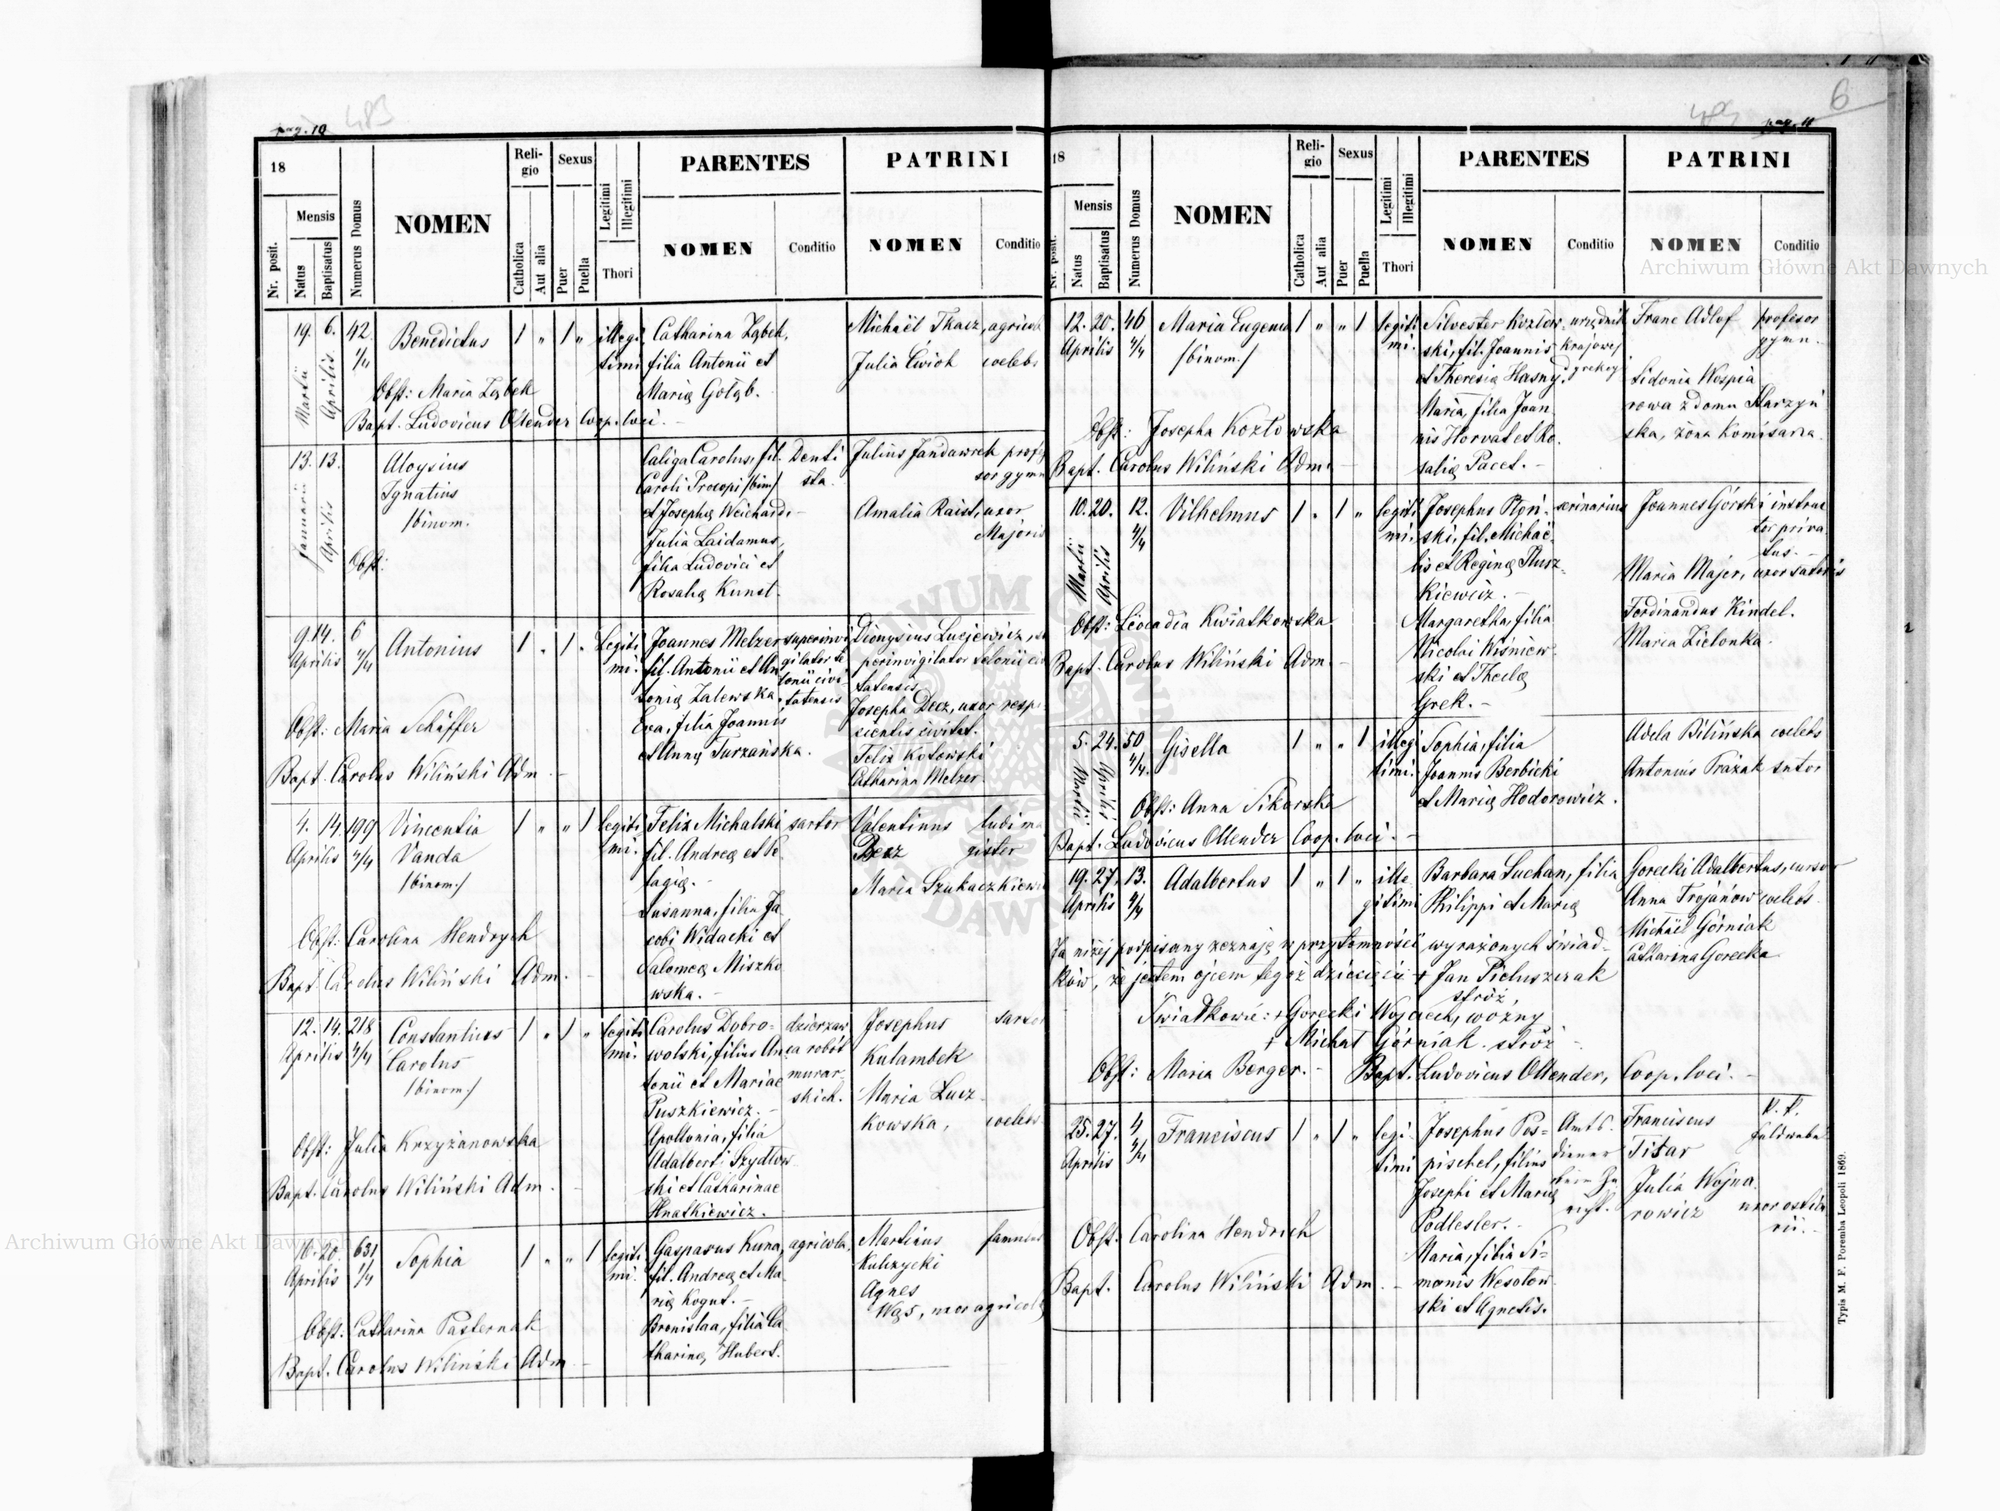 pag. 10
483
18
Nr. posit.
Mensis
Natus
Baptisatus
Numerus Domus
NOMEN
Reli-
gio
Catholica
Aut alia
Sexus
Puer
Puella
Legitimi
Illegitimi
Thori
PARENTES
NOMEN
Conditio
PATRINI
NOMEN
Conditio
19. Martii 6. Aprilis 42 Benedictus 1 „ 1 „ illegi
timi
Catharina Ząbek,
filia Antonii et
Mariæ Gołąb.
Michaël Tkacz, agricola
Julia Ćwiok coelebs
Obst: Maria Ząbek
Bapt. Ludovicus Ollender Coop. loci. —
13. Januarii 13. Aprilis Aloysius
Ignatius
/binom.
Caliga Carolus, fil.
Caroli Procopi /bin/
et Josephæ Weichard. —
Julia Laidamus,
filia Ludovici et
Rosaliæ Kunst.
Denti
sta.
Julius Jandaurek profes
sor gymn
Amalia Raist, uxor
Majoris
Obst:
9. 14. Aprilis 6 Antonius 1 „ 1 „ Legiti
mi.
Joannes Melzer
fil. Antonii et An
toniæ Zalewska.
Eva, filia Joannis
et Annæ Turzańska.
superinvi
gilator te
lonii civi-
tatensis
Dionysius Lucjewicz, su
perinvigilator telonii civi
tatensis
Josepha Decz, uxor respi
cientis civitat.
Felix Kotowski
Catharina Melzer
Obst: Maria Schäffer
Bapt. Carolus Wiliński Adm. —
4. 14. Aprilis 199 Vincentia
Vanda
/binom./
1 „ „ 1 legiti
mi.
Felix Michalski
fil. Andreæ et Pe
lagiæ. —
Susanna, filia Ja
cobi Widacki et
Salomeæ Miszko
wska. —
sartor
Valentinus
Decz
ludima
gister
Maria Szukaczkiewi
Obst. Carolina Hendrych
Bapt. Carolus Wiliński Adm. —
12. 14. Aprilis 218 Constantinus
Carolus
/binom./
1 „ 1 „ legiti
mi.
Carolus Dobro-
wolski, filius An
tonii et Mariae
Puszkiewicz. —
Apollonia, filia
Adalberti Szydłow
ski et Catharinae
Hnatkiewicz. —
dzierzaw
ca robót
murar-
skich.
Josephus
Kulambek
Maria Lucz
kowska, coelebs
Obst: Julia Krzyżanowska
Bapt. Carolus Wiliński Adm. —
16. 20. Aprilis 631 Sophia 1 „ „ 1 legiti
mi.
Gasparus Kuna,
fil. Andreæ et Ma-
riæ Kogut. —
Bronislaa, filia Ca
tharinæ Hubert.
agricola,
Martinus
Kulczycki
famulus
Agnes
Wąs, uxor agricolæ
Obst: Catharina Pasternak
Bapt. Carolus Wiliński Adm. —
6
pag. 11
18
Nr. posit.
Mensis
Natus
Baptisatus
Numerus Domus
NOMEN
Reli-
gio
Catholica
Aut alia
Sexus
Puer
Puella
Legitimi
Illegitimi
Thori
PARENTES
NOMEN
Conditio
PATRINI
NOMEN
Conditio
12. 20. Aprilis 46 Maria Eugenia
/binom./
1 „ „ 1 legiti
mi.
Silvester Kozłow
ski, fil. Joannis
et Theresiæ Hasny.
Maria, filia Joan
nis Horvat et Ro.
saliæ Pacet. —
urzędnik
krajowej
dyrekcyi
Franc Adlof profesor
gymn.
Sidonia Wespia
nowa z domu Harzyń
ska, żona komisarza.
Obst: Josepha Kozłowska
Bapt. Carolus Wiliński Adm.
10. Martii 20. Aprilis 12. Vilhelmus 1 „ 1 „ legiti
mi.
Josephus
ski, fil. Michaë-
lis et Reginæ
kiewicz. —
Margaretha, filia
Nicolai Wiśniew
ski et Theclæ
Grek. —
Joannes Górski instruc
tor priva
tus. —
Maria Majer, uxor sartoris
Ferdinandus Kindel.
Maria Zielonka.
Obst: Leocadia Kwiatkowska
Bapt. Carolus Wiliński Adm. —
5. 24. Aprilis 50 Gisella 1 „ „ 1 illegi
timi.
Sophia, filia
Joannis Berbicki
et Mariæ Hodorowicz.
Adela Bilińska coelebs
Antonius Prażak sutor
Obst: Anna Sikorska
Bapt. Ludovicus Ollender Coop. loci. —
19. 27. Aprilis 13. Adalbertus 1 „ 1 „ ille
gitimi
Barbara Suchan, filia
Philippi et Mariæ
Gorecki Adalbertus, cursor
Anna Trojanów coelebs.
Michaël Górniak
Catharina Gorecka
Ja niżej podpisany zeznaję w przytomności wyrażonych świad-
ków, że jestem ojcem tegoż dziecięcia + Jan Pieluszczak
stróż,
Świadkowie: + Gorecki Wojciech, woźny
+ Michał Górniak. stróż —
Obst: Maria Berger. — Bapt. Ludovicus Ollender, Coop. loci. —
25. 27. Aprilis 4 Franciscus 1 „ 1 „ legi.
timi
Josephus Pos-
pischel, filius
Josephi et Mariæ
Podlesler. —
Maria, filia Si-
monis Wesołow
ski et Agnetis.
Amts.
diener
beim Ge
richt.
Franciscus
Titar
k. k.
feldwebel
Julia Wojna
rowicz
uxor ostia
rii. —
Obst: Carolina Hendrich
Bapt. Carolus Wiliński Adm. —
Typis M. F. Poremba Leopoli 1869.
Archiwum Główne Akt Dawnych
Archiwum Główne Akt Dawnych
ARCHIWUM GŁÓWNE AKT DAWNYCH